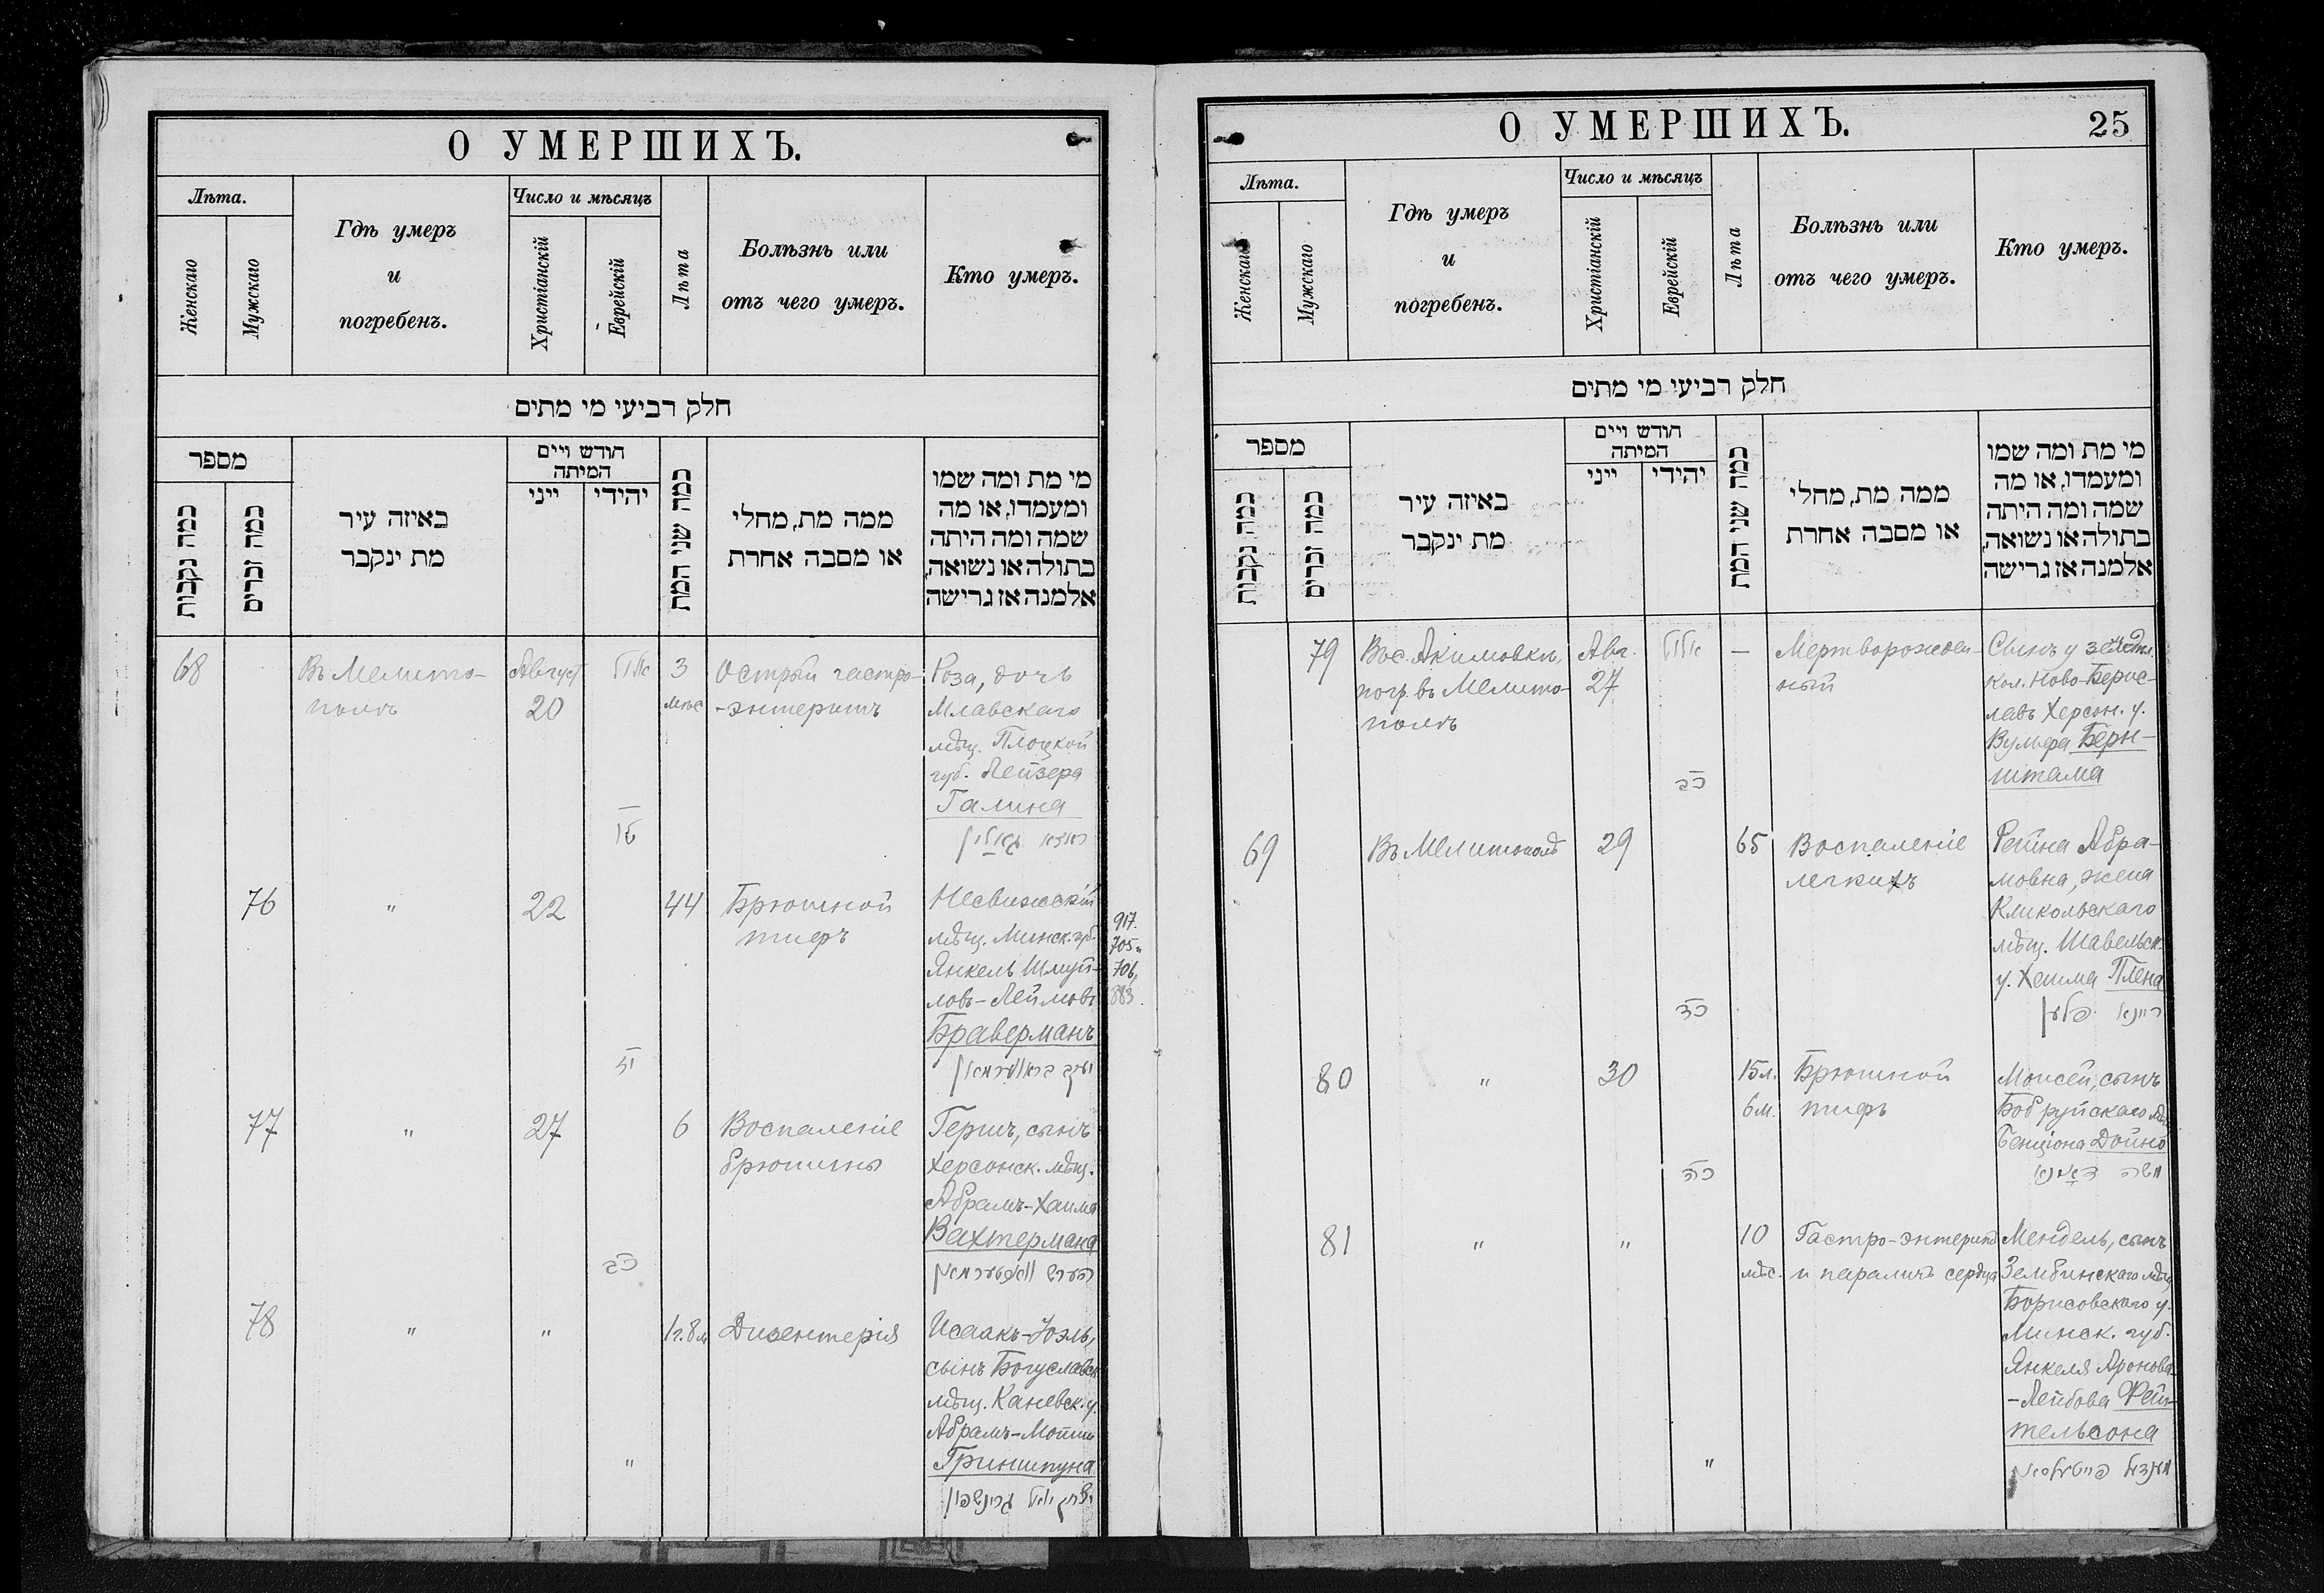 О УМЕРШИХЪ.
Лѣта.
Женскаго
Мужскаго
Гдѣ умеръ
и
погребенъ.
Число и мѣсяцъ
Христіанскій
Еврейскій
Лѣта
Болѣзнь или
отъ чего умеръ.
Кто умеръ.
חלק רביעי מי מתים
מספר
כמה נקבות
כמה זכרים
באיזה עיר
מת ינקבר
חודש ויים
המיתה
ייני
יהודי
כמה שני המת
ממה מת, מחלי
או מסבה אחרת
מי מת ומה שמו
ומעמדו, או מה
שמה ומה היתה
בתולה או נשואה,
אלמנה אז גרישה
68
Въ Мелито-
полѣ
Август
20
אלול
טז
3
мѣс
Острый гастро-
-энтеритъ
Роза, дочь
Млавскаго
мѣщ. Плоцкой
губ. Лейзера
Галина
76
"
22
44
Брюшной
тифъ
Несвижскій
мѣщ. Минск. губ.
Янкель Шмуй-
ловъ-
Браверманъ
917.
705
706,
883.
77
"
27
כב
6
Воспаленіе
брюшины
Гершъ, сынъ
Херсонск. мѣщ.
Абрамъ-Хаима
Вахтермана
הערש וואכטערמאן
78
"
"
"
1г. 8м
Дизентерія
Исаакъ-Іоэль,
сынъ Богуславск
мѣщ. Каневск. у.
Абрамъ-
Гриншпуна
יצחק יואל גרינשפון
О УМЕРШИХЪ.
25
Лѣта.
Женскаго
Мужскаго
Гдѣ умеръ
и
погребенъ.
Число и мѣсяцъ
Христіанскій
Еврейскій
Лѣта
Болѣзнь или
отъ чего умеръ.
Кто умеръ.
חלק רביעי מי מתים
מספר
כמה נקבות
כמה זכרים
באיזה עיר
מת ינקבר
חודש ויים
המיתה
ייני
יהודי
כמה שני המת
ממה מת, מחלי
או מסבה אחרת
מי מת ומה שמו
ומעמדו, או מה
שמה ומה היתה
בתולה או נשואה,
אלמנה אז גרישה
79
Въ с. Акимовкѣ,
погр. въ Мелито-
полѣ
Авг.
27
אלול
כב
—
Мертворожден-
ный
Сынъ у
кол. Ново-Берис-
лавъ Херсон. у.
Вульфа Берн-
штама
69
Въ Мелитополѣ
29
כד
65
Воспаленіе
легкихъ
Рейна Абра-
мовна, жена
Кликольскаго
мѣщ. Шавельск.
у. Хаима Плена
ריינא פלען
80
"
30
כה
15л.
6м.
Брюшной
тифъ
Моисей, сынъ
Бобруйскаго мѣщ
Бенціона Дойно
81
"
"
"
10
мѣс.
Гастро-энтеритъ
и параличъ сердца
Мендель, сынъ
Зембинскаго мѣщ
Борисовскаго у.
Минск. губ.
Янкеля Аронова-
-Лейбова Фей-
тельсона
מענדל פייטעלסאן